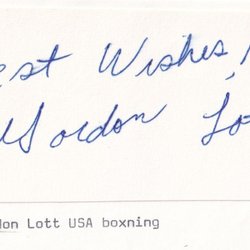 est Wishes,
Gordon Lo
don Lott USA boxning